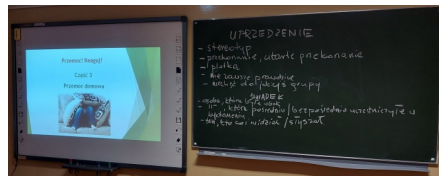 Przemoc! Reaguj!
Część 3
Przemoc domowa
UPRZEDZENIE
- stereotyp
- przekonanie, utarte przekonanie
- plotka
- nie zawsze prawdziwe
- niechęć do jakiejś grupy
ŚWIADEK
- osoba, która
- "", która pośrednio/bezpośrednio uczestniczy w
wydarzeniu
- ten, kto coś widział / słyszał